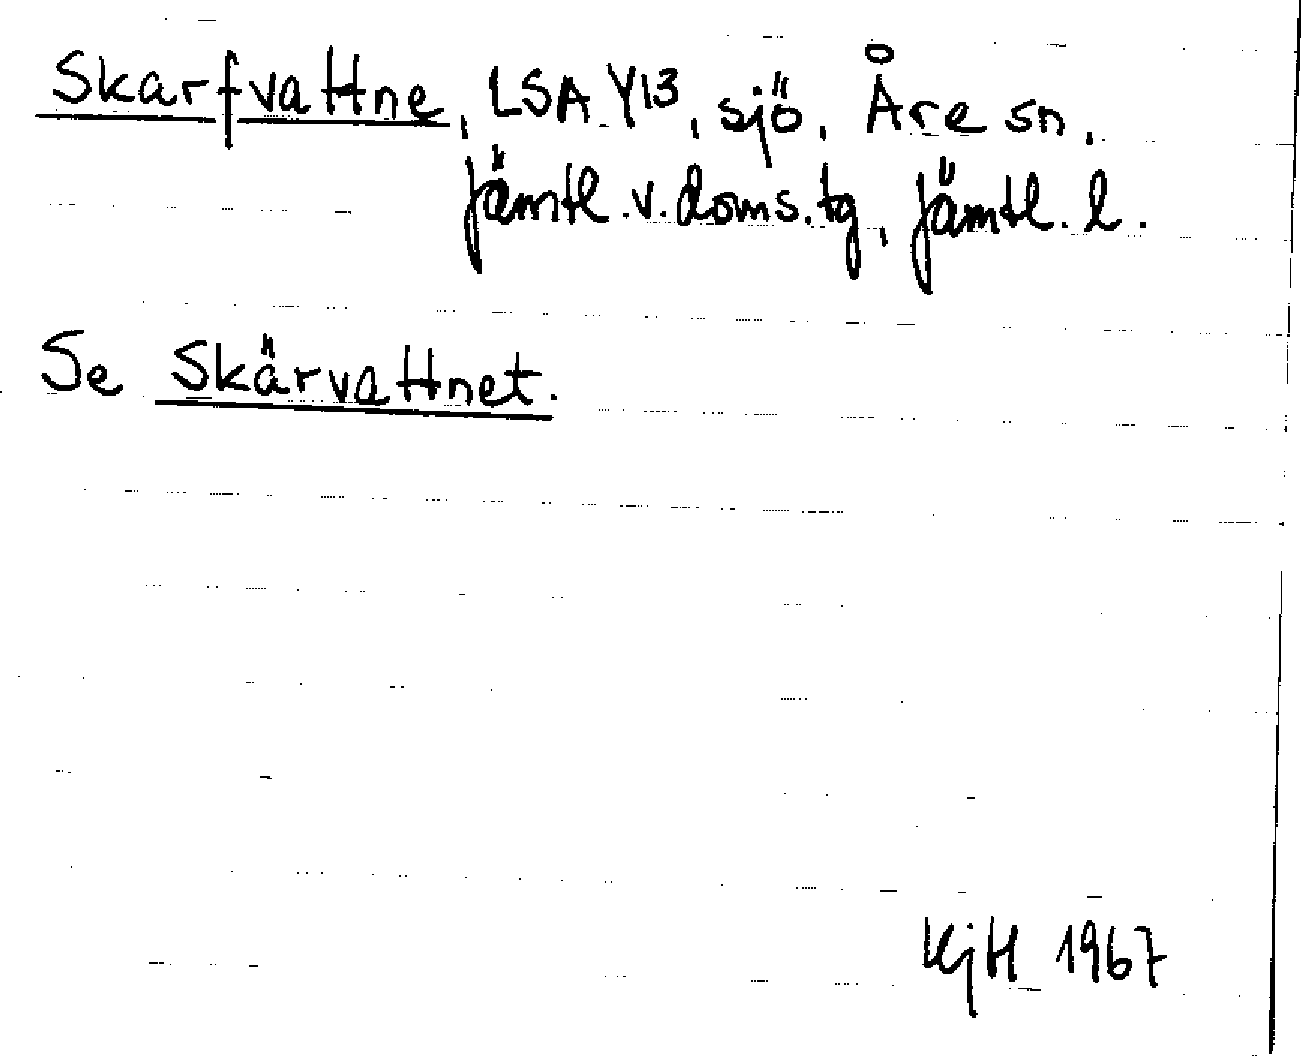 Skarfvattne, LSA Y13, sjö, Åre sn,
Jämtl. v. doms. tg, Jämtl. l.
Se Skärvattnet.
KjH 1967